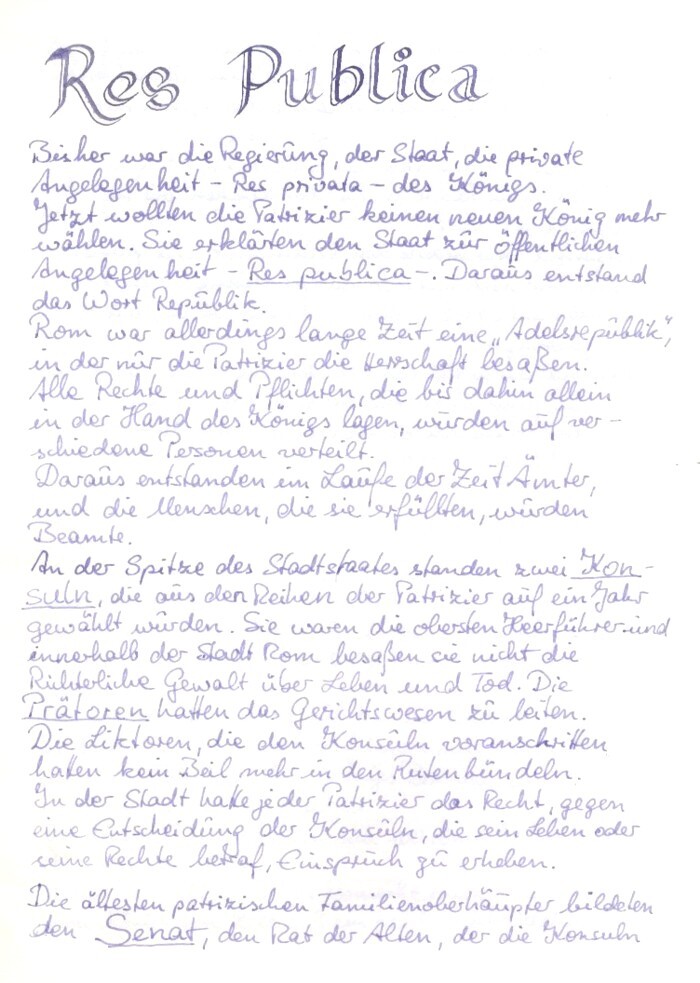 Res Publica
Bisher war die Regierung, der Staat, die private
Angelegenheit - Res privata - des Königs.
Jetzt wollten die Patrizier keinen neuen König mehr
wählen. Sie erklärten den Staat zur öffentlichen
Angelegenheit - Res publica -. Daraus entstand
das Wort Republik.
Rom war allerdings lange Zeit eine „Adelsrepublik“,
in der nur die Patrizier die Herrschaft besaßen.
Alle Rechte und Pflichten, die bis dahin allein
in der Hand des Königs lagen, wurden auf ver-
schiedene Personen verteilt.
Daraus entstanden im Laufe der Zeit Ämter,
und die Menschen, die sie erfüllten, wurden
Beamte.
An der Spitze des Stadtstaates standen zwei Kon-
suln, die aus den Reihen der Patrizier auf ein Jahr
gewählt wurden. Sie waren die obersten Heerführer und
innerhalb der Stadt Rom besaßen sie nicht die
Richterliche Gewalt über Leben und Tod. Die
Prätoren hatten das Gerichtswesen zu leiten.
Die Liktoren, die den Konsuln voranschritten
hatten kein Beil mehr in den Rutenbündeln.
In der Stadt hatte jeder Patrizier das Recht, gegen
eine Entscheidung der Konsuln, die sein Leben oder
seine Rechte betraf, Einspruch zu erheben.
Die ältesten patrizischen Familienoberhäupter bildeten
den Senat, den Rat der Alten, der die Konsuln